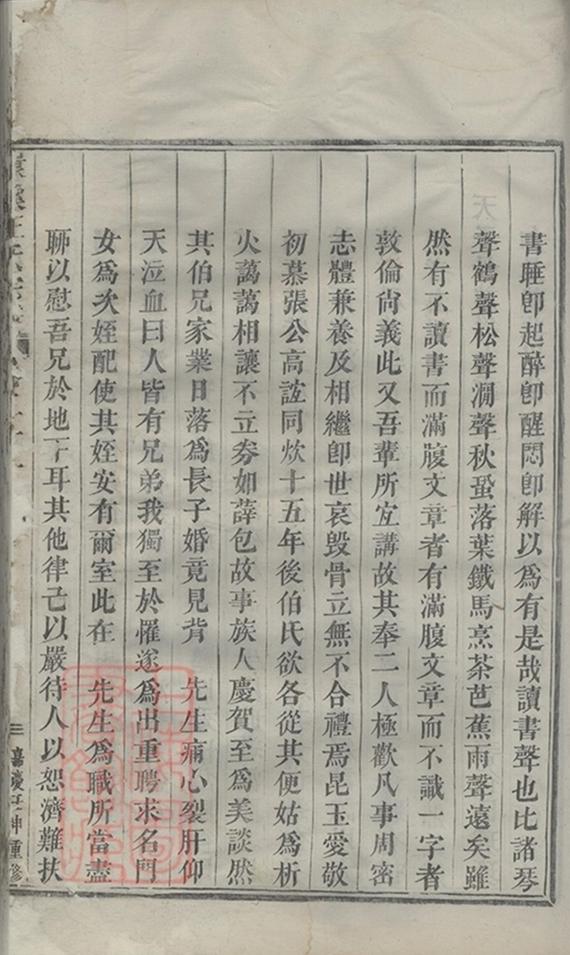 書睡卽起醉卽醒悶卽解以爲有是哉讀書聲也比諸琴
聲鶴聲松聲澗聲秋蛩落葉鐵馬烹茶芭蕉雨聲遠矣雖
然有不讀書而滿腹文章者有滿腹文章而不識一字者
敦倫尙義此又吾輩所宜講故其奉二人極歡凡事周密
志體兼養及相繼卽世哀毀骨立無不合禮焉昆玉愛敬
初慕張公高誼同炊十五年後伯氏欲各從其便姑爲析
火藹藹相讓不立券如薛包故事族人慶賀至爲美談然
其伯兄家業日落爲長子婚竟見背 先生痛心裂肝仰
天泣血曰人皆有兄弟我獨至於罹遂爲出重聘求名門
女爲次姪配使其姪安有爾室此在 先生爲職所當盡
聊以慰吾兄於地下耳其他律己以嚴待人以恕濟難扶
三 嘉慶壬申重修